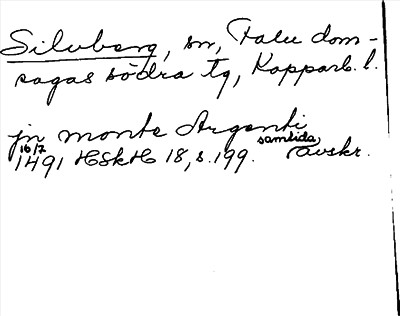 Silvberg, sn, Falu dom-
sagas södra tg, Kopparb. l.
jn monte Argenti
16/7 1491 HSkH 18, s. 199. samtida, avskr.